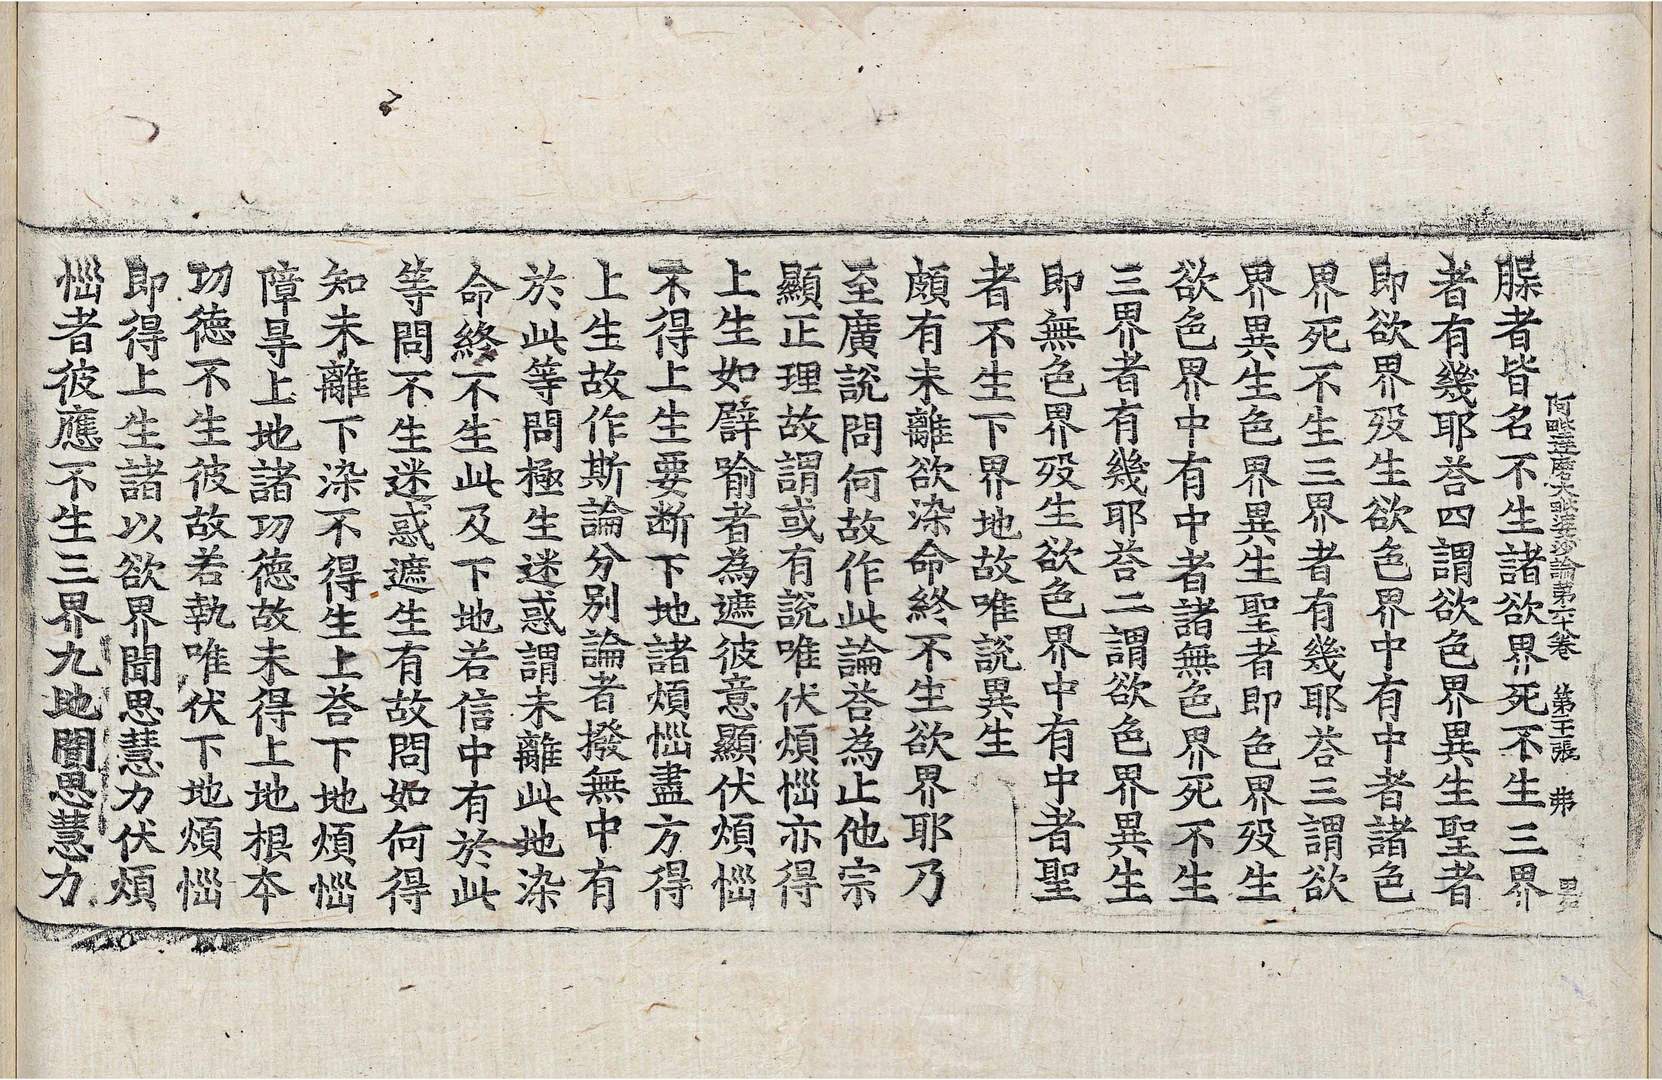 阿毗達磨大毗婆沙論第六十卷 第二十張 弗
躶者皆名不生諸欲界死不生三界
者有幾耶荅四謂欲色界異生聖者
即欲界歿生欲色界中有中者諸色
界死不生三界者有幾耶荅三謂欲
界異生色界異生聖者即色界歿生
欲色界中有中者諸無色界死不生
三界者有幾耶荅二謂欲色界異生
即無色界歿生欲色界中有中者聖
者不生下界地故唯說異生
頗有未離欲染命終不生欲界耶乃
至廣說問何故作此論荅為止他宗
顯正理故謂或有說唯伏煩惱亦得
上生如譬喻者為遮彼意顯伏煩惱
不得上生要断下地諸煩惱盡方得
上生故作斯論分別論者撥無中有
於此等問極生迷惑謂未離此地染
命終不生此及下地若信中有於此
等問不生迷惑遮生有故問如何得
知未離下染不得生上荅下地煩惱
障㝵上地諸功德故未得上地根本
功德不生彼故若執唯伏下地煩惱
即得上生諸以欲界聞思慧力伏煩
惱者彼應不生三界九地聞思慧力